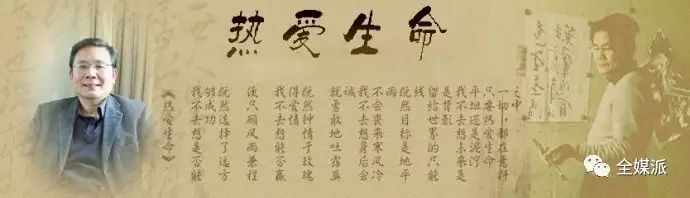 热爱生命
《热爱生命》
我不去想是否能
够成功
既然选择了远方
便只顾风雨兼程
我不去想能否赢
得爱情
既然钟情于玫瑰
就勇敢地吐露真
诚
我不去想身后会
不会袭来寒风冷
雨
既然目标是地平
线
留给世界的只能
是背影
我不去想未来是
平坦还是泥泞
只要热爱生命
一切，都在意料
之中
全媒派